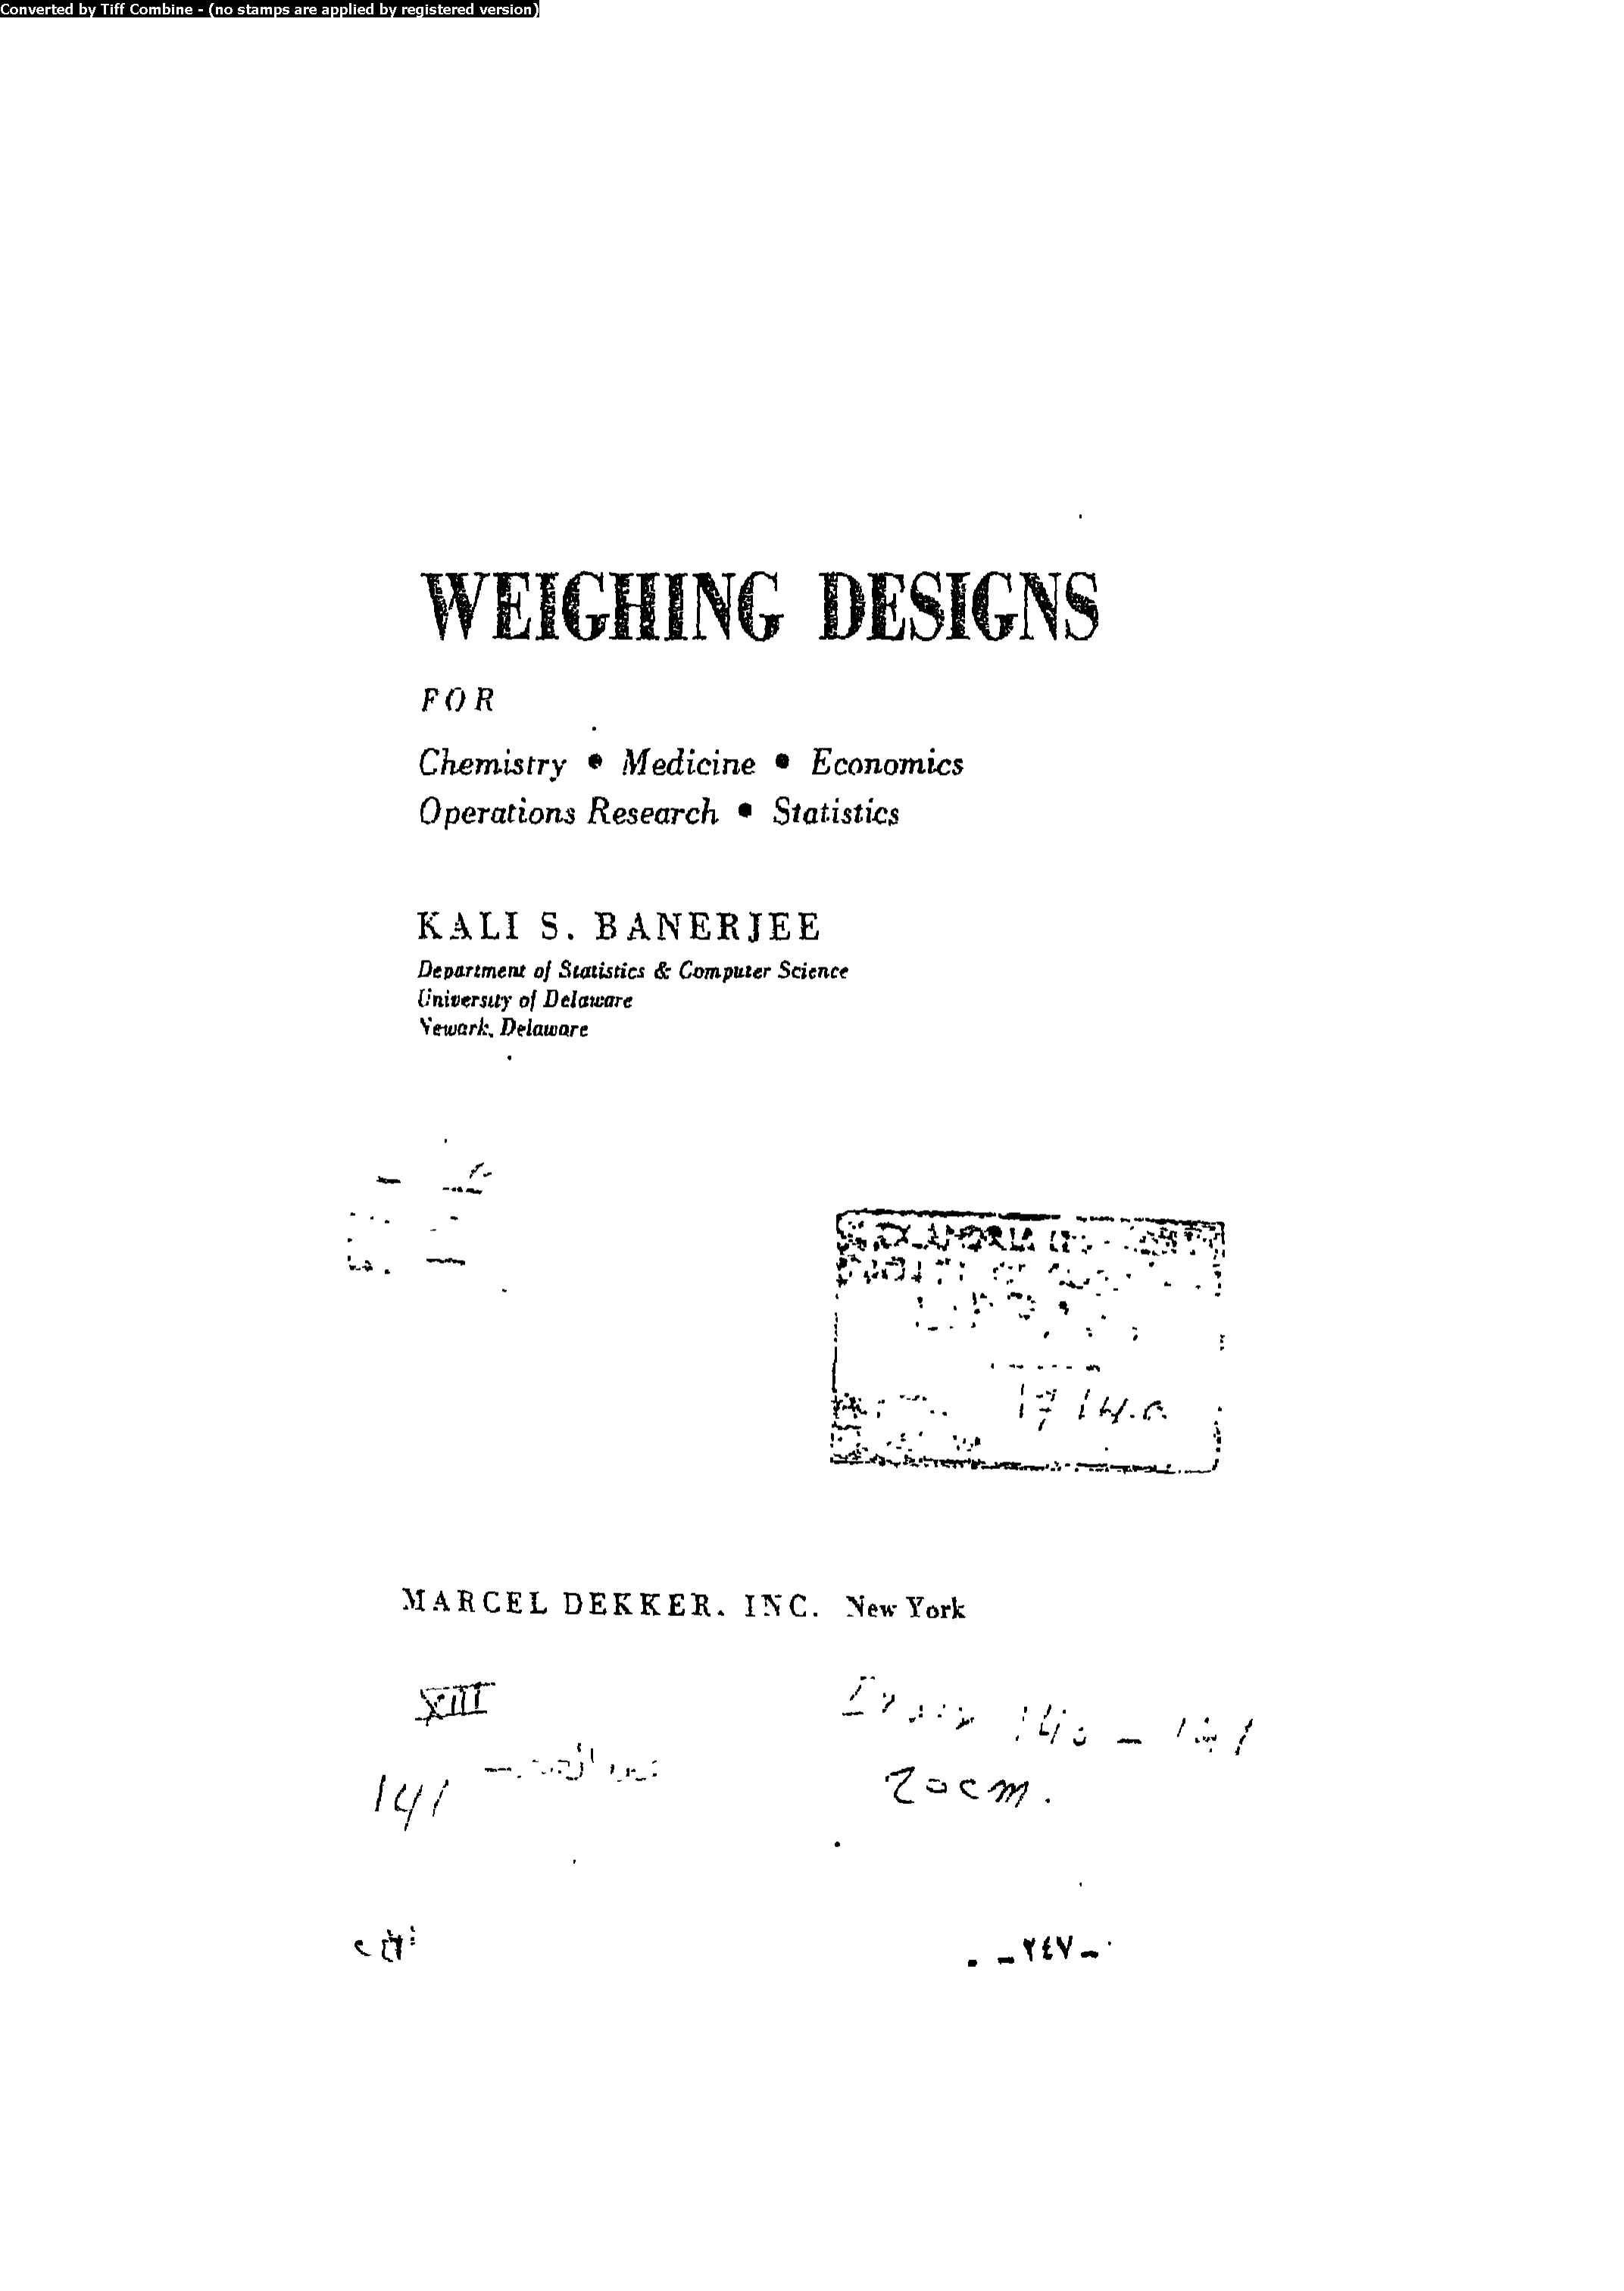 Converted by Tiff Combine - (no stamps are applied by registered version)
WEIGHING DESIGNS
FOR
Chemistry • Medicine • Economics
Operations Research • Statistics
KALI S. BANERJEE
Department of Statistics & Computer Science
University of Delaware
Newark, Delaware
MARCEL DEKKER, INC. New York
XIII
141
20cm.
-٢٤٧-